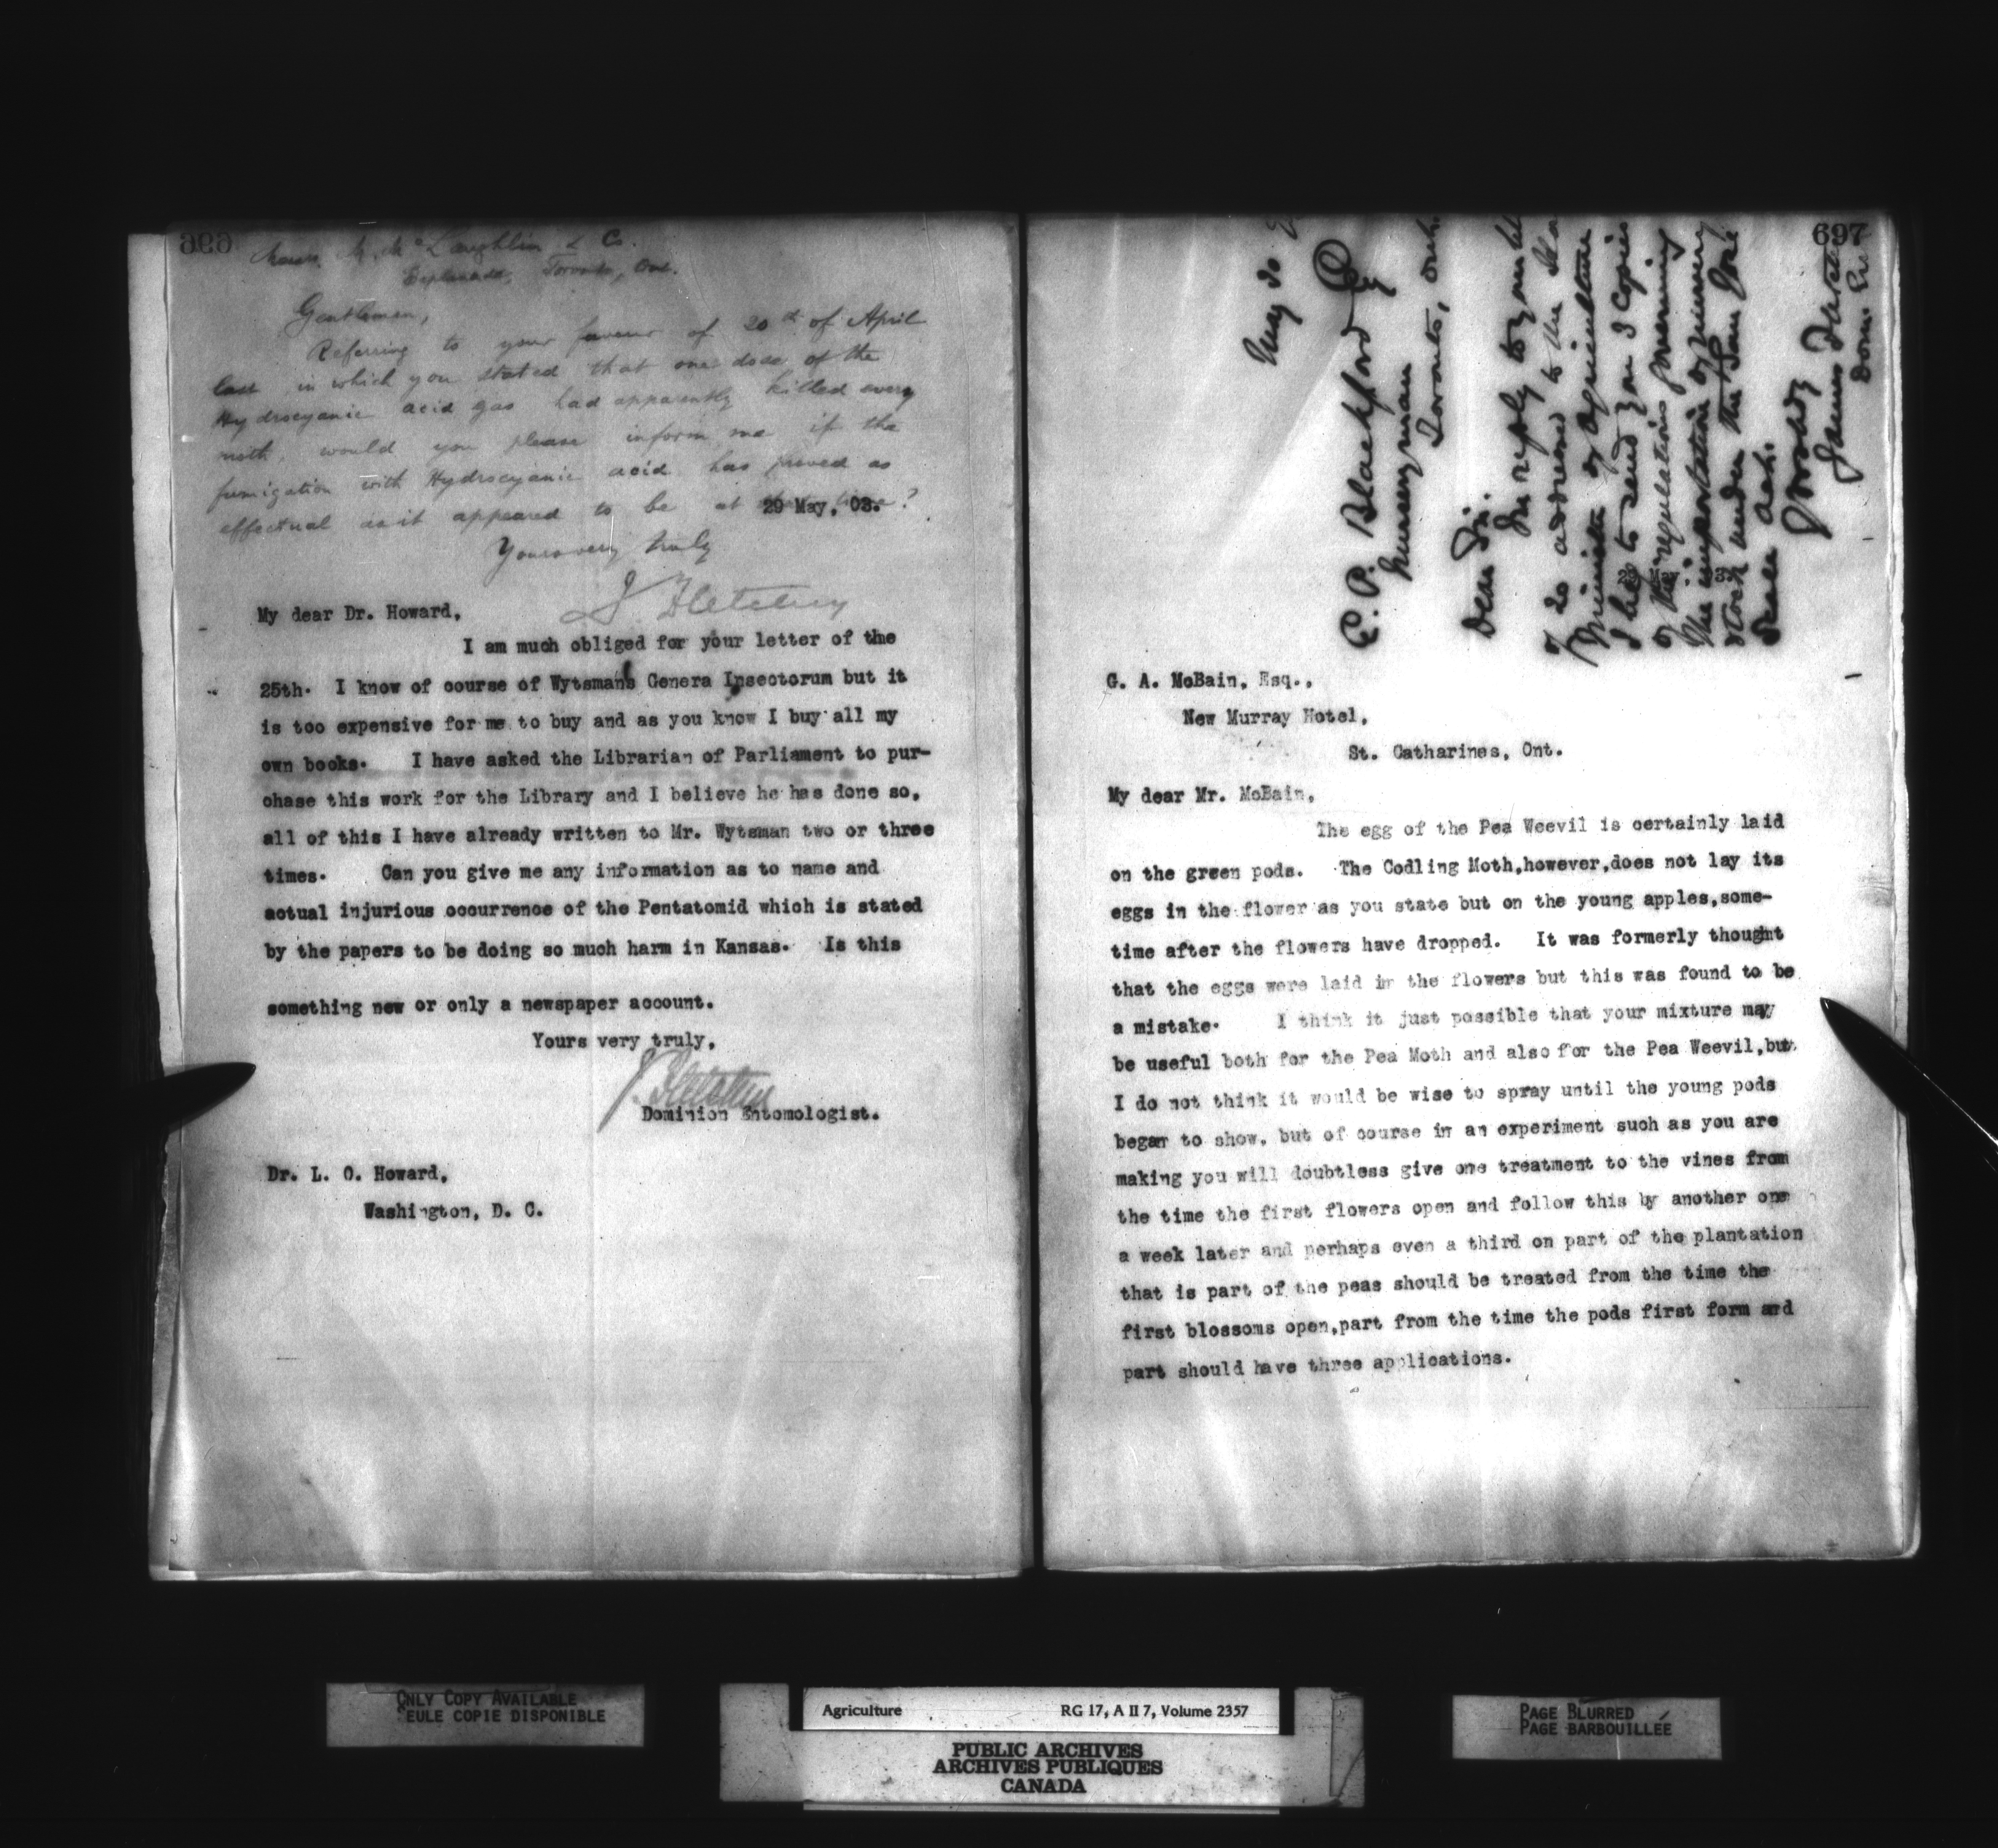 Messrs. M. McLaughlin & Co.
Esplanade, Toronto, Ont.
Gentlemen,
Referring to your favour of 20th of April
last in which you stated that one dose of the
Hydrocyanic acid gas had apparently killed every
moth, would you please inform me if the
fumigation with Hydrocyanic acid has proved as
effectual as it appeared to be at time?
29 May, 03.
Yours very truly
J Fletcher
My dear Dr. Howard,
I am much obliged for your letter of the
25th. I know of course of Wytsman's Genera Insectorum but it
is too expensive for me to buy and as you know I buy all my
own books. I have asked the Librarian of Parliament to pur-
chase this work for the Library and I believe he has done so,
all of this I have already written to Mr. Wytsman two or three
times. Can you give me any information as to name and
actual injurious occurrence of the Pentatomid which is stated
by the papers to be doing so much harm in Kansas. Is this
something new or only a newspaper account.
Yours very truly,
J. Fletcher
Dominion Entomologist.
Dr. L. O. Howard,
Washington, D. C.
697
May 30
E. P. Blackford Esq
Nurseryman
Toronto, Ont.
Dear Sir.
In reply to your
addressed to the
Minister of Agriculture
I beg to send you 3 copies
of the regulations governing
the importation of nursery
stock under the San José
Scale Act.
Yours truly
James Fletcher
Dom.
G. A. McBain, Esq.,
New Murray Hotel,
St. Catharines, Ont.
My dear Mr. McBain,
The egg of the Pea Weevil is certainly laid
on the green pods. The Codling Moth,however,does not lay its
eggs in the flower as you state but on the young apples,some-
time after the flowers have dropped. It was formerly thought
that the eggs were laid in the flowers but this was found to be
a mistake. I think it just possible that your mixture may
be useful both for the Pea Moth and also for the Pea Weevil,but
I do not think it would be wise to spray until the young pods
began to show, but of course in an experiment such as you are
making you will doubtless give one treatment to the vines from
the time the first flowers open and follow this by another one
a week later and perhaps even a third on part of the plantation
that is part of the peas should be treated from the time the
first blossoms open,part from the time the pods first form and
part should have three applications.
ONLY COPY AVAILABLE
SEULE COPIE DISPONIBLE
Agriculture RG 17, A II 7, Volume 2357
PUBLIC ARCHIVES
ARCHIVES PUBLIQUES
CANADA
PAGE BLURRED
PAGE BARBOUILLÉE